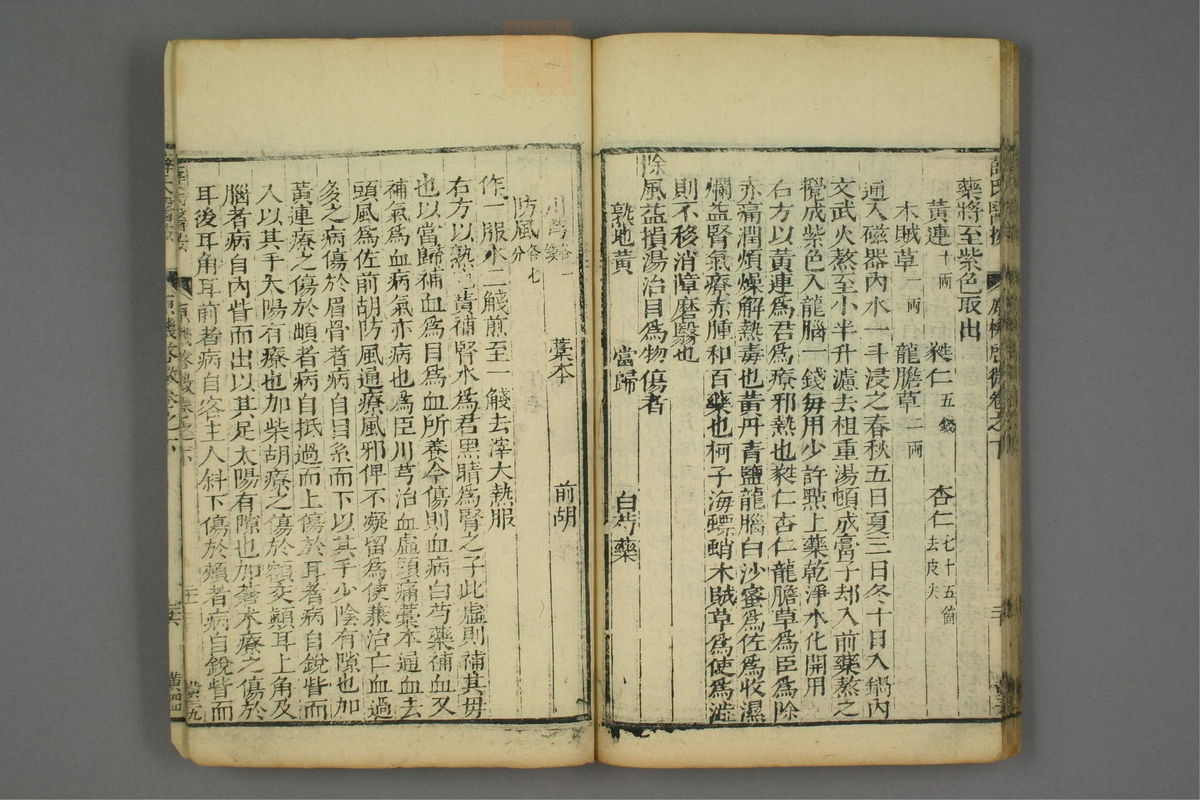 藥將至紫色取出
黃連十兩 蕤仁五錢 杏仁七十五箇去皮尖
木賊草一兩 龍膽草二兩
通入磁器內水一斗浸之春秋五日夏三日冬十日入鍋內
文武火熬至小半升濾去柤重湯頓成膏子却入前藥熬之
攪成紫色入龍腦一錢每用少許㸃上藥乾淨水化開用
右方以黃連爲君爲療邪熱也蕤仁杏仁龍膽草爲臣爲除
赤痛潤煩燥解熱毒也黃丹青鹽龍腦白沙蜜爲佐爲收濕
爛益腎氣療赤腫和百藥也柯子海螵蛸木賊草爲使爲澁
則不移消障磨翳也
除風益損湯治目爲物傷者
熟地黃 當歸 白芍藥
川芎各一錢 藁本 前胡
防風各七分
作一服水二醆煎至一醆去滓大熱服
右方以熟地黃補腎水爲君黑睛爲腎之子此虛則補其母
也以當歸補血爲目爲血所養今傷則血病白芍藥補血又
補氣爲血病氣亦病也爲臣川芎治血虛頭痛藁本通血去
頭風爲佐前胡防風通療風邪俾不凝留爲使兼治亡血過
多之病傷於眉骨者病自目系而下以其手少陰有隙也加
黃連療之傷於䪼者病自抵過而上傷於耳者病自銳眥而
入以其手太陽有療也加柴胡療之傷於額交顚耳上角及
腦者病自內眥而出以其足太陽有隙也加蒼朮療之傷於
耳後耳角耳前者病自客主人斜下傷於頰者病自銳眥而